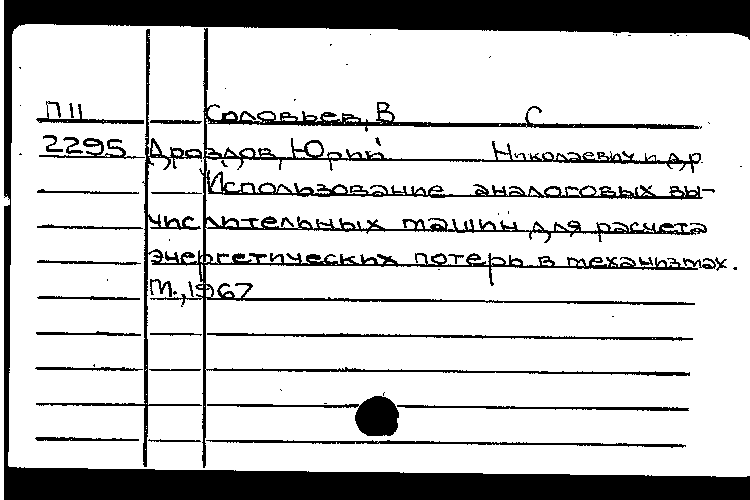 П11 Соловьев, В С
2295 Дроздов, Юрий Николаевич и др
Использование аналоговых вы-
числительных машин для расчета
энергетических потерь в механизмах.
М., 1967